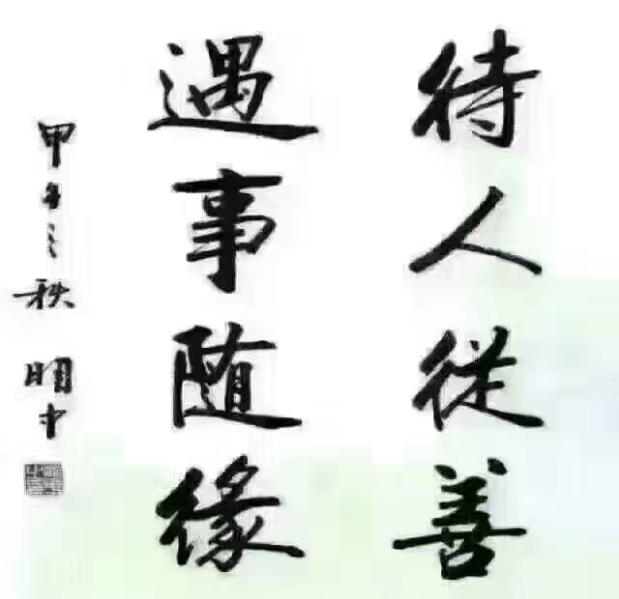 待人從善
遇事随緣
甲午之秋 明中